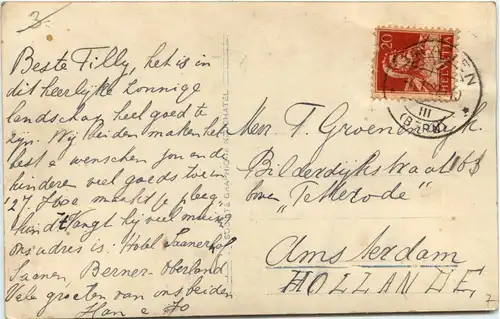 3-
Beste Tilly, het is in
dit heerlijke zonnige
landschap heel goed te
zijn. Wij beiden maken het
best e wenschen jou en de
kinderen veel goeds toe in
'27. Hoe maakt 't pleeg-
kind? Vangt hij veel muizen
ons adres is. Hotel Saanerhof
Saanen, Berner-Oberland
Vele groeten van ons beiden
Han e Jo
20
HELVETIA
SAANEN
III
(BERN)
SOCIÉTÉ GRAPHIQUE NEUCHATEL
Mevr. T. Groenendijk.
Bilderdijkstraat 163
boven "Tetterode"
Amsterdam
HOLLANDE
7